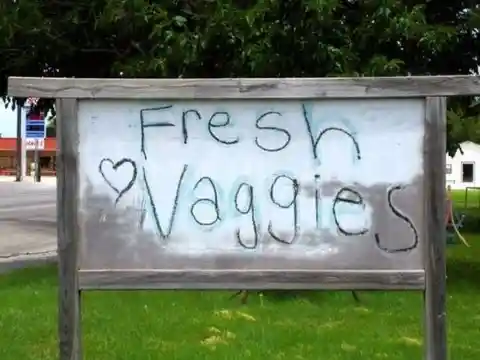 Fresh
♡ Vaggies